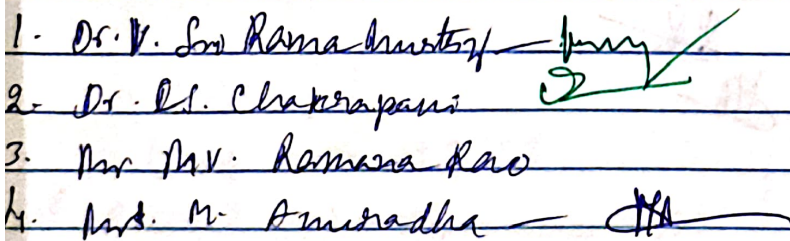 1. Dr. V. Sri Rama Murthy —
2. Dr. Ch. Chakrapani
3. Mr MV. Ramana Rao
4. Mrs. M. Anuradha —